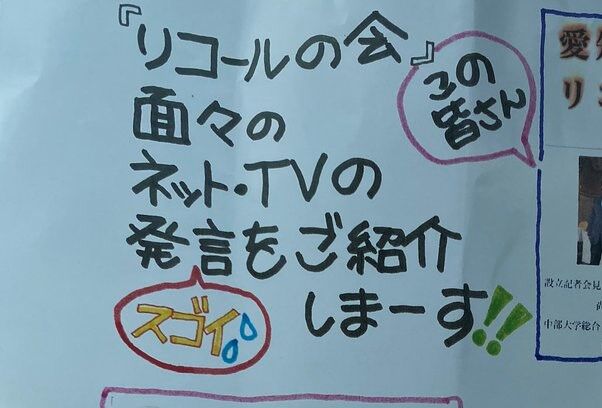 『リコールの会』
面々の
ネット・TVの
発言をご紹介
しまーす!!
スゴイ
この
皆さん
愛
リコ
設立記者会見
中部大学総合